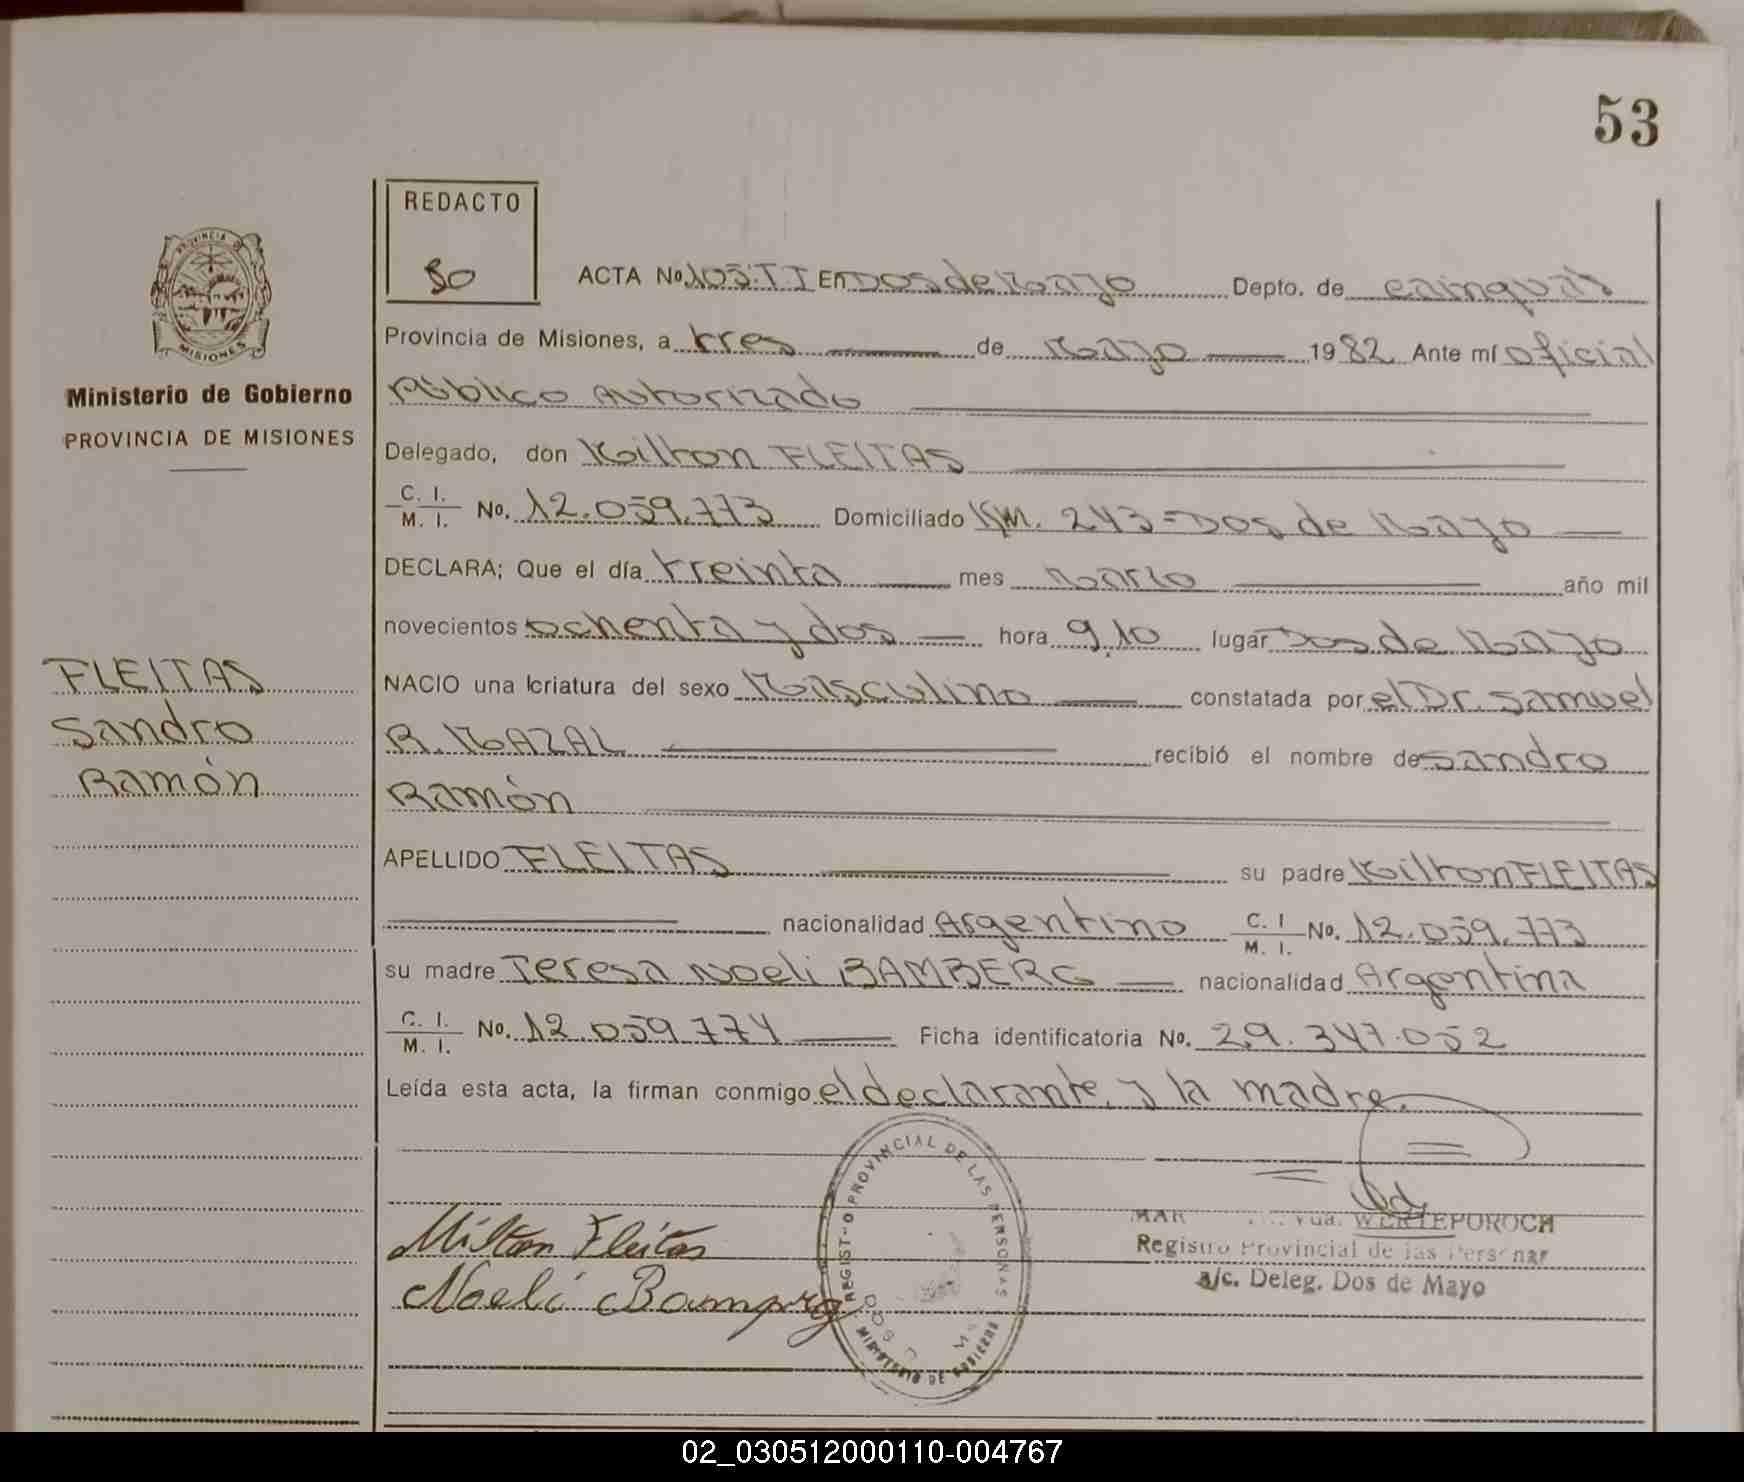 53
REDACTO
80
ACTA No. 105.T.I En Dos de Mayo Depto. de Cainguás
Provincia de Misiones, a tres de Mayo 1982 Ante mí oficial
Público Autorizado
Delegado, don Milton FLEITAS
C. I.
M. I. No. 12.059.773 Domiciliado KM. 243 = Dos de Mayo
DECLARA; Que el día treinta mes Marzo año mil
novecientos ochenta y dos hora 9,10 lugar Dos de Mayo
NACIO una criatura del sexo Masculino constatada por el Dr. Samuel
R. MAZAL recibió el nombre de Sandro
Ramón
APELLIDO FLEITAS su padre Milton FLEITAS
nacionalidad Argentino C. I
M. I. No. 12.059.773
su madre Teresa Noeli BAMBERG nacionalidad Argentina
C. I.
M. I. No. 12.059.774 Ficha identificatoria No. 29.347.052
Leída esta acta, la firman conmigo el declarante, y la madre.
Milton Fleitas
Noeli Bamberg
REGISTRO PROVINCIAL DE LAS PERSONAS
MINISTERIO DE GOBIERNO
Vda. WERTEPOROCH
Registro Provincial de las Personas
a/c. Deleg. Dos de Mayo
PROVINCIA DE
MISIONES
Ministerio de Gobierno
PROVINCIA DE MISIONES
FLEITAS
Sandro
Ramón
02_030512000110-004767